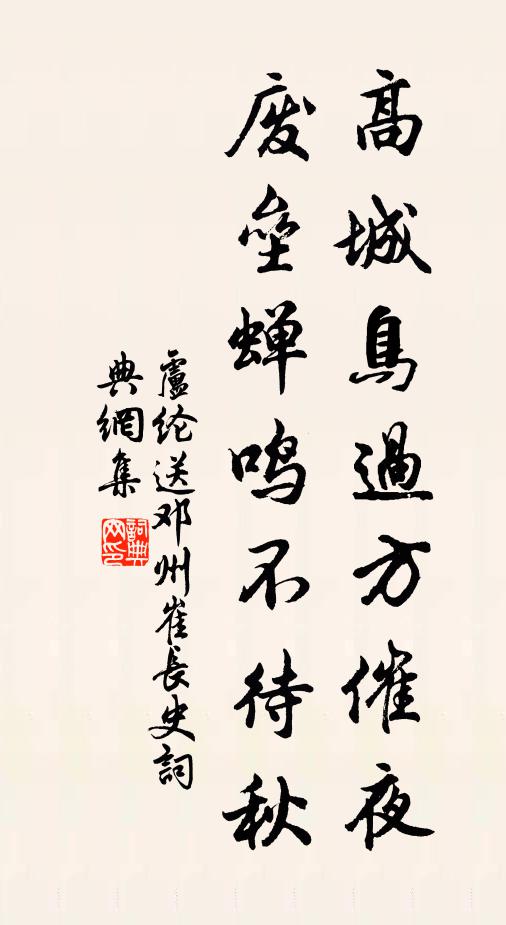 高城鳥過方催夜
廢壘蟬鸣不待秋
盧纶送邓州崔長史詞
典網集
詞典网印